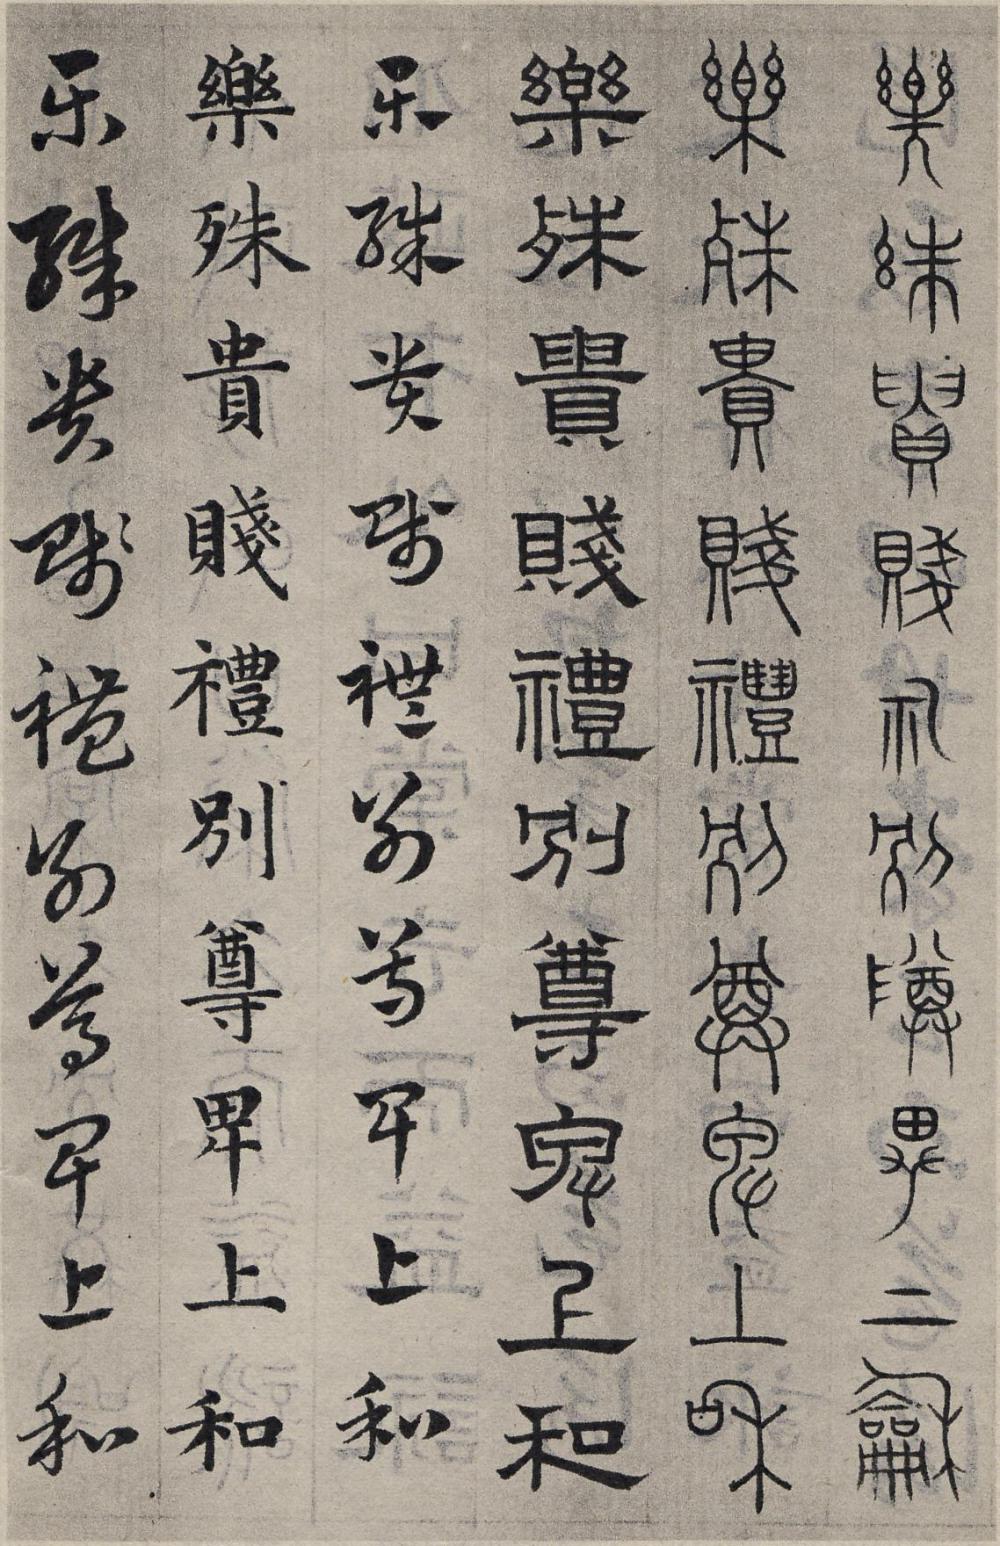 樂殊貴賤礼別尊卑二龢
樂殊貴賤禮別尊卑上和
樂殊貴賤禮別尊卑上和
乐殊贵賤禮別尊卑上和
樂殊貴賤禮別尊卑上和
乐殊贵賤禮別尊卑上和